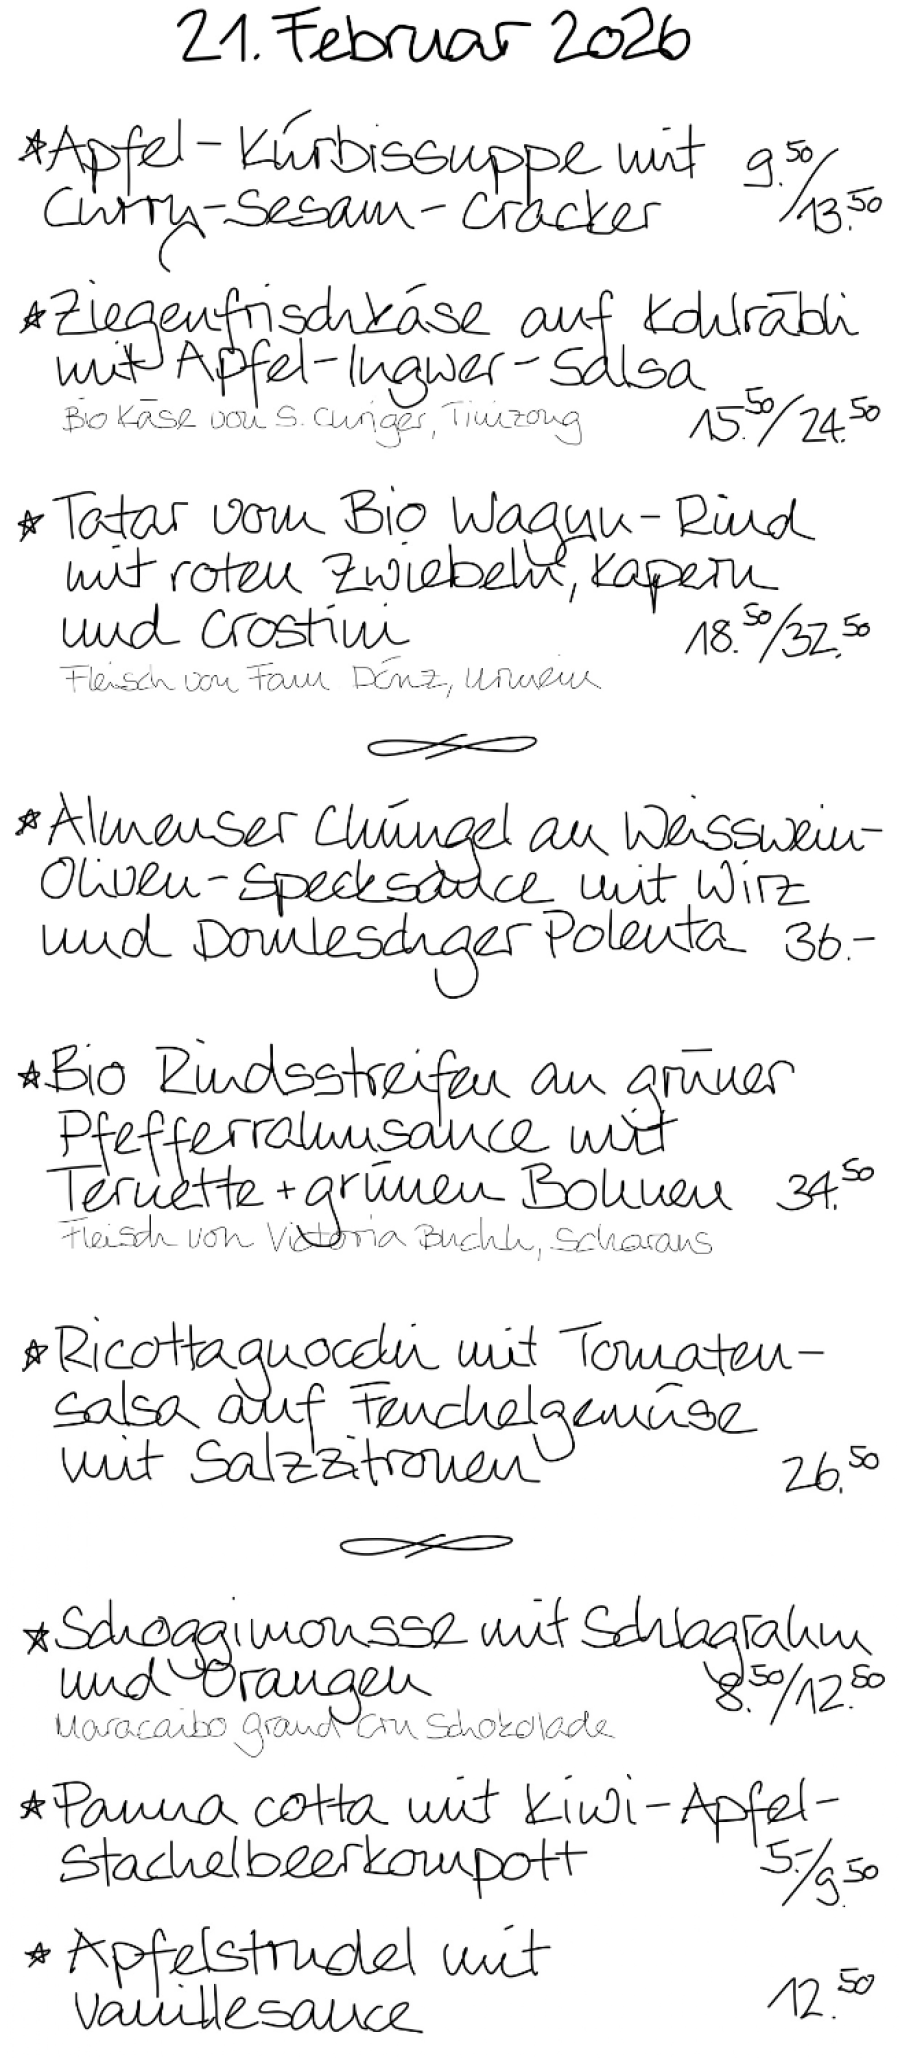 21. Februar 2026
*Apfel-Kürbissuppe mit 9.50/
Curry-Sesam-Cracker 13.50
*Ziegenfrischkäse auf Kohlräbli
mit Apfel-Ingwer-Salsa
Bio Käse von S. Curiger, Tinizong 15.50/24.50
*Tatar vom Bio Wagyu-Rind
mit roten Zwiebeln, Kapern
und Crostini 18.50/32.50
Fleisch von Fam Dönz, Urmein
*Almenser Chüngel an Weisswein-
Oliven-Specksauce mit Wirz
und Domleschger Polenta 36.-
*Bio Rindsstreifen an grüner
Pfefferrahmsauce mit
Ternette + grünen Bohnen 34.50
Fleisch von Victoria Buchli, Scharans
*Ricottagnocchi mit Tomaten-
salsa auf Fenchelgemüse
mit Salzzitronen 26.50
*Schoggimousse mit Schlagrahm
und Orangen 8.50/12.50
Maracaibo Grand Cru Schokolade
*Panna cotta mit Kiwi-Apfel-
Stachelbeerkompott 5.-/9.50
*Apfelstrudel mit
Vanillesauce 12.50